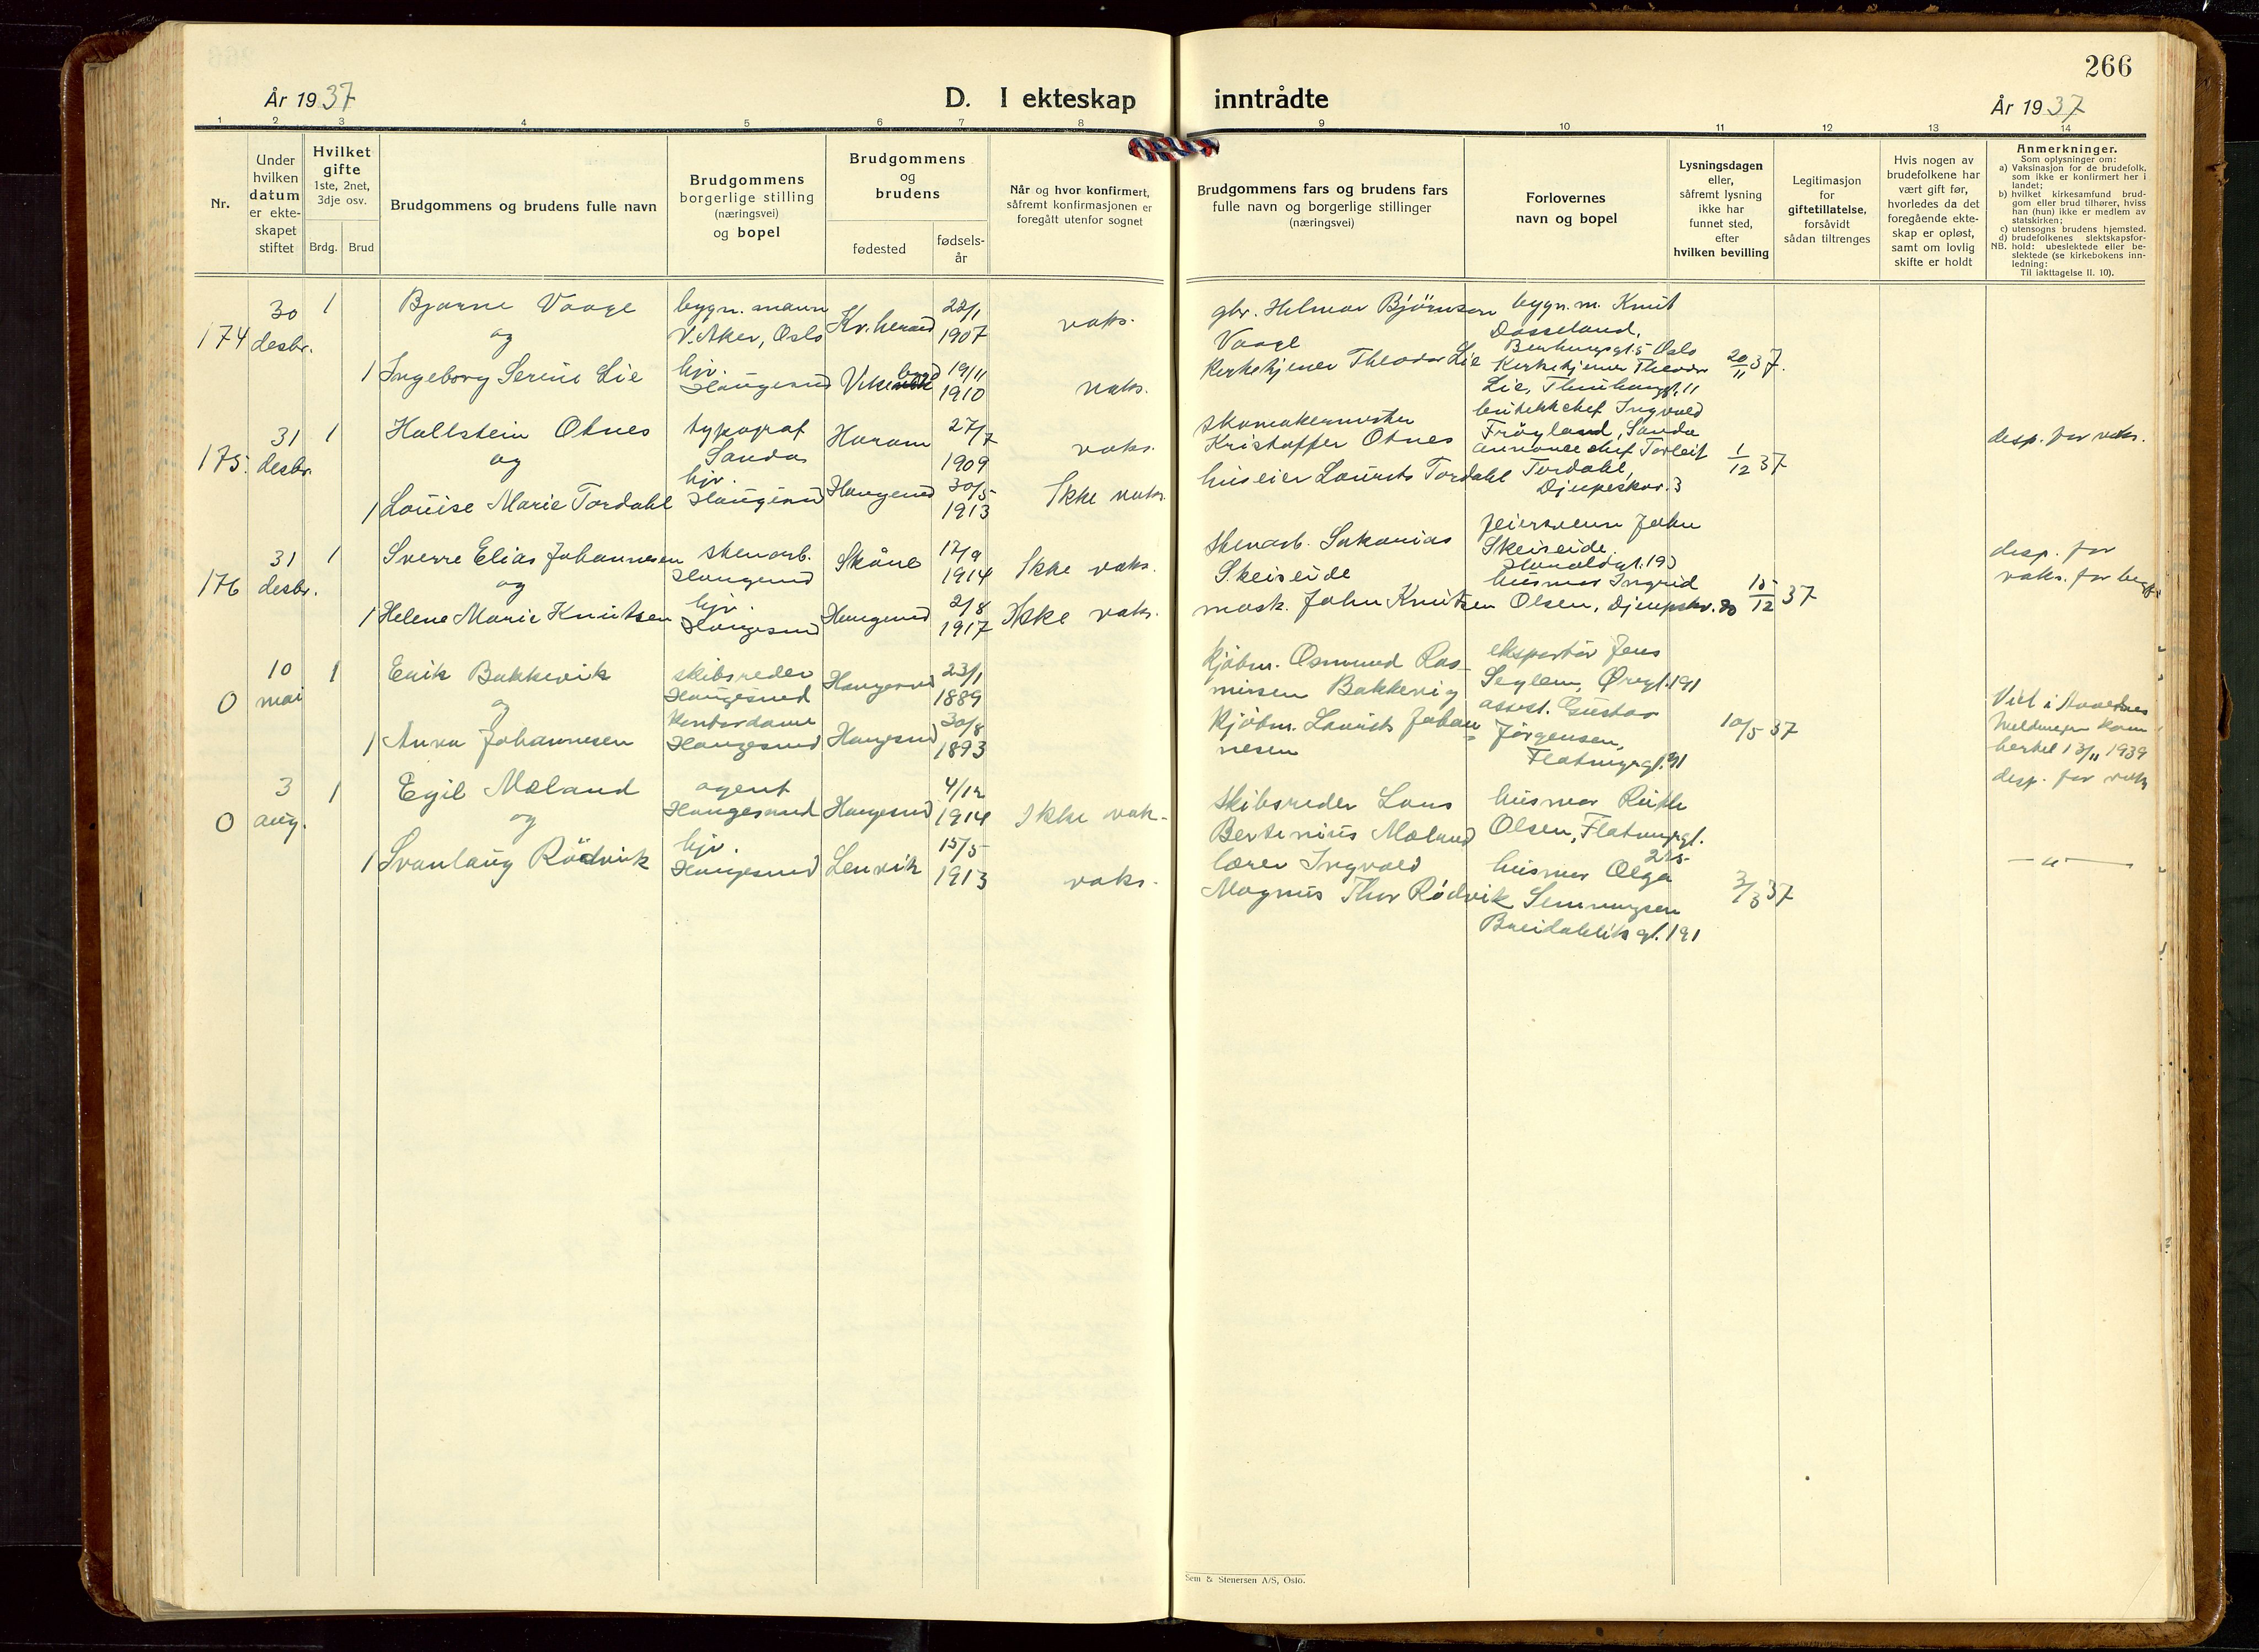 266
År 1937
D. I ekteskap inntrådte
År 1937
1 2 3 4 5 6 7 8 9 10 11 12 13 14
Nr.
Under
hvilken
datum
er ekte-
skapet
stiftet
Hvilket
gifte
1ste, 2net,
3dje osv.
Brdg. Brud
Brudgommens og brudens fulle navn
Brudgommens
borgerlige stilling
(næringsvei)
og bopel
Brudgommens
og
brudens
fødested
fødsels-
år
Når og hvor konfirmert,
såfremt konfirmasjonen er
foregått utenfor sognet
Brudgommens fars og brudens fars
fulle navn og borgerlige stillinger
(næringsvei)
Forlovernes
navn og bopel
Lysningsdagen
eller,
såfremt lysning
ikke har
funnet sted,
efter
hvilken bevilling
Legitimasjon
for
giftetillatelse,
forsåvidt
sådan tiltrenges
Hvis nogen av
brudefolkene har
vært gift før,
hvorledes da det
foregående ekte-
skap er opløst,
samt om lovlig
skifte er holdt
Anmerkninger.
Som oplysninger om:
a) Vaksinasjon for de brudefolk,
som ikke er konfirmert her i
landet;
b) hvilket kirkesamfund brud-
gom eller brud tilhører, hviss
han (hun) ikke er medlem av
statskirken;
c) utensogns brudens hjemsted.
d) brudefolkenes slektskapsfor-
NB. hold: ubeslektede eller be-
slektede (se kirkebokens inn-
ledning:
Til iakttagelse II. 10).
174
30
desbr.
1
Bjarne Vaage
og
1 Ingeborg Serine Lie
bygn. mann
V. Aker, Oslo
hjv.
Haugesund
Kv.herad
22/1
1907
19/11
1910
vaks.
vaks.
gbr. Helmar Björnsen
Vaage
Kirketjener Theodor Lie
bygn. m. Knut
Dosseland,
Kirketjener Theodor
20/11 37.
175.
31
desbr.
1
Hallstein Otnes
og
1 Louise Marie Tordahl
typograf
Sauda
hjv.
Haugesund
Haram
Haugesund
27/7
1909
30/5
1913
vaks.
Ikke vaks.
skomakermester
Kristoffer Otnes
huseier Laurits Tordahl
Ingvald
Fröyland, Sauda
Annonce chef Torleif
Tordahl,
Djupeskar. 3
1/12 37
desp. for vaks.
176
31
desbr.
1
Sverre Elias Johannesen
og
1 Helene Marie Knutsen
stenarb.
Haugesund
hjv.
Haugesund
Skåne
Haugesund
17/9
1914
2/8
1917
Ikke vaks.
Ikke vaks.
Stenarb. Sakarias
Skeiseide
mask. John Knutsen
feiersvenn John
Skeiseide.
husmor Ingrid
Olsen, Djupskar. 20
15/12 37
desp. for
vaks. for begge
0
10
mai
1
Erik Bakkevik
og
1 Anna Johannesen
skibsreder
Haugesund
Kontordame
Haugesund
Haugesund
Haugesund
23/1
1889
30/8
1893
kjöbm. Osmund Ras-
musen Bakkevig
Kjöbm. Laurits Johan-
nesen
eksportör Jens
Seglem, Øregt. 191
assist. Gustav
Jörgensen,
Flatmyrgt. 91
10/5 37
Viet i Avaldsnes
Meldingen kom
hertel 13/11 1939
desp. for vaks
0
3
aug.
1
Egil Mæland
og
1 Svanlaug Rödvik
agent
Haugesund
hjv.
Haugesund
Haugesund
Lenvik
4/12
1914
15/5
1913
Ikke vak.
vaks.
Skibsreder Lars
Bertinius Mæland
lærer Ingvald
Magnus Thor Rødvik
husmor Ruth
Olsen, Flatmyrgt.
husmor Olga
Semmingsen
Breidabliks gt. 191
3/8 37
— " —
Sem & Stenersen A/S, Oslo.